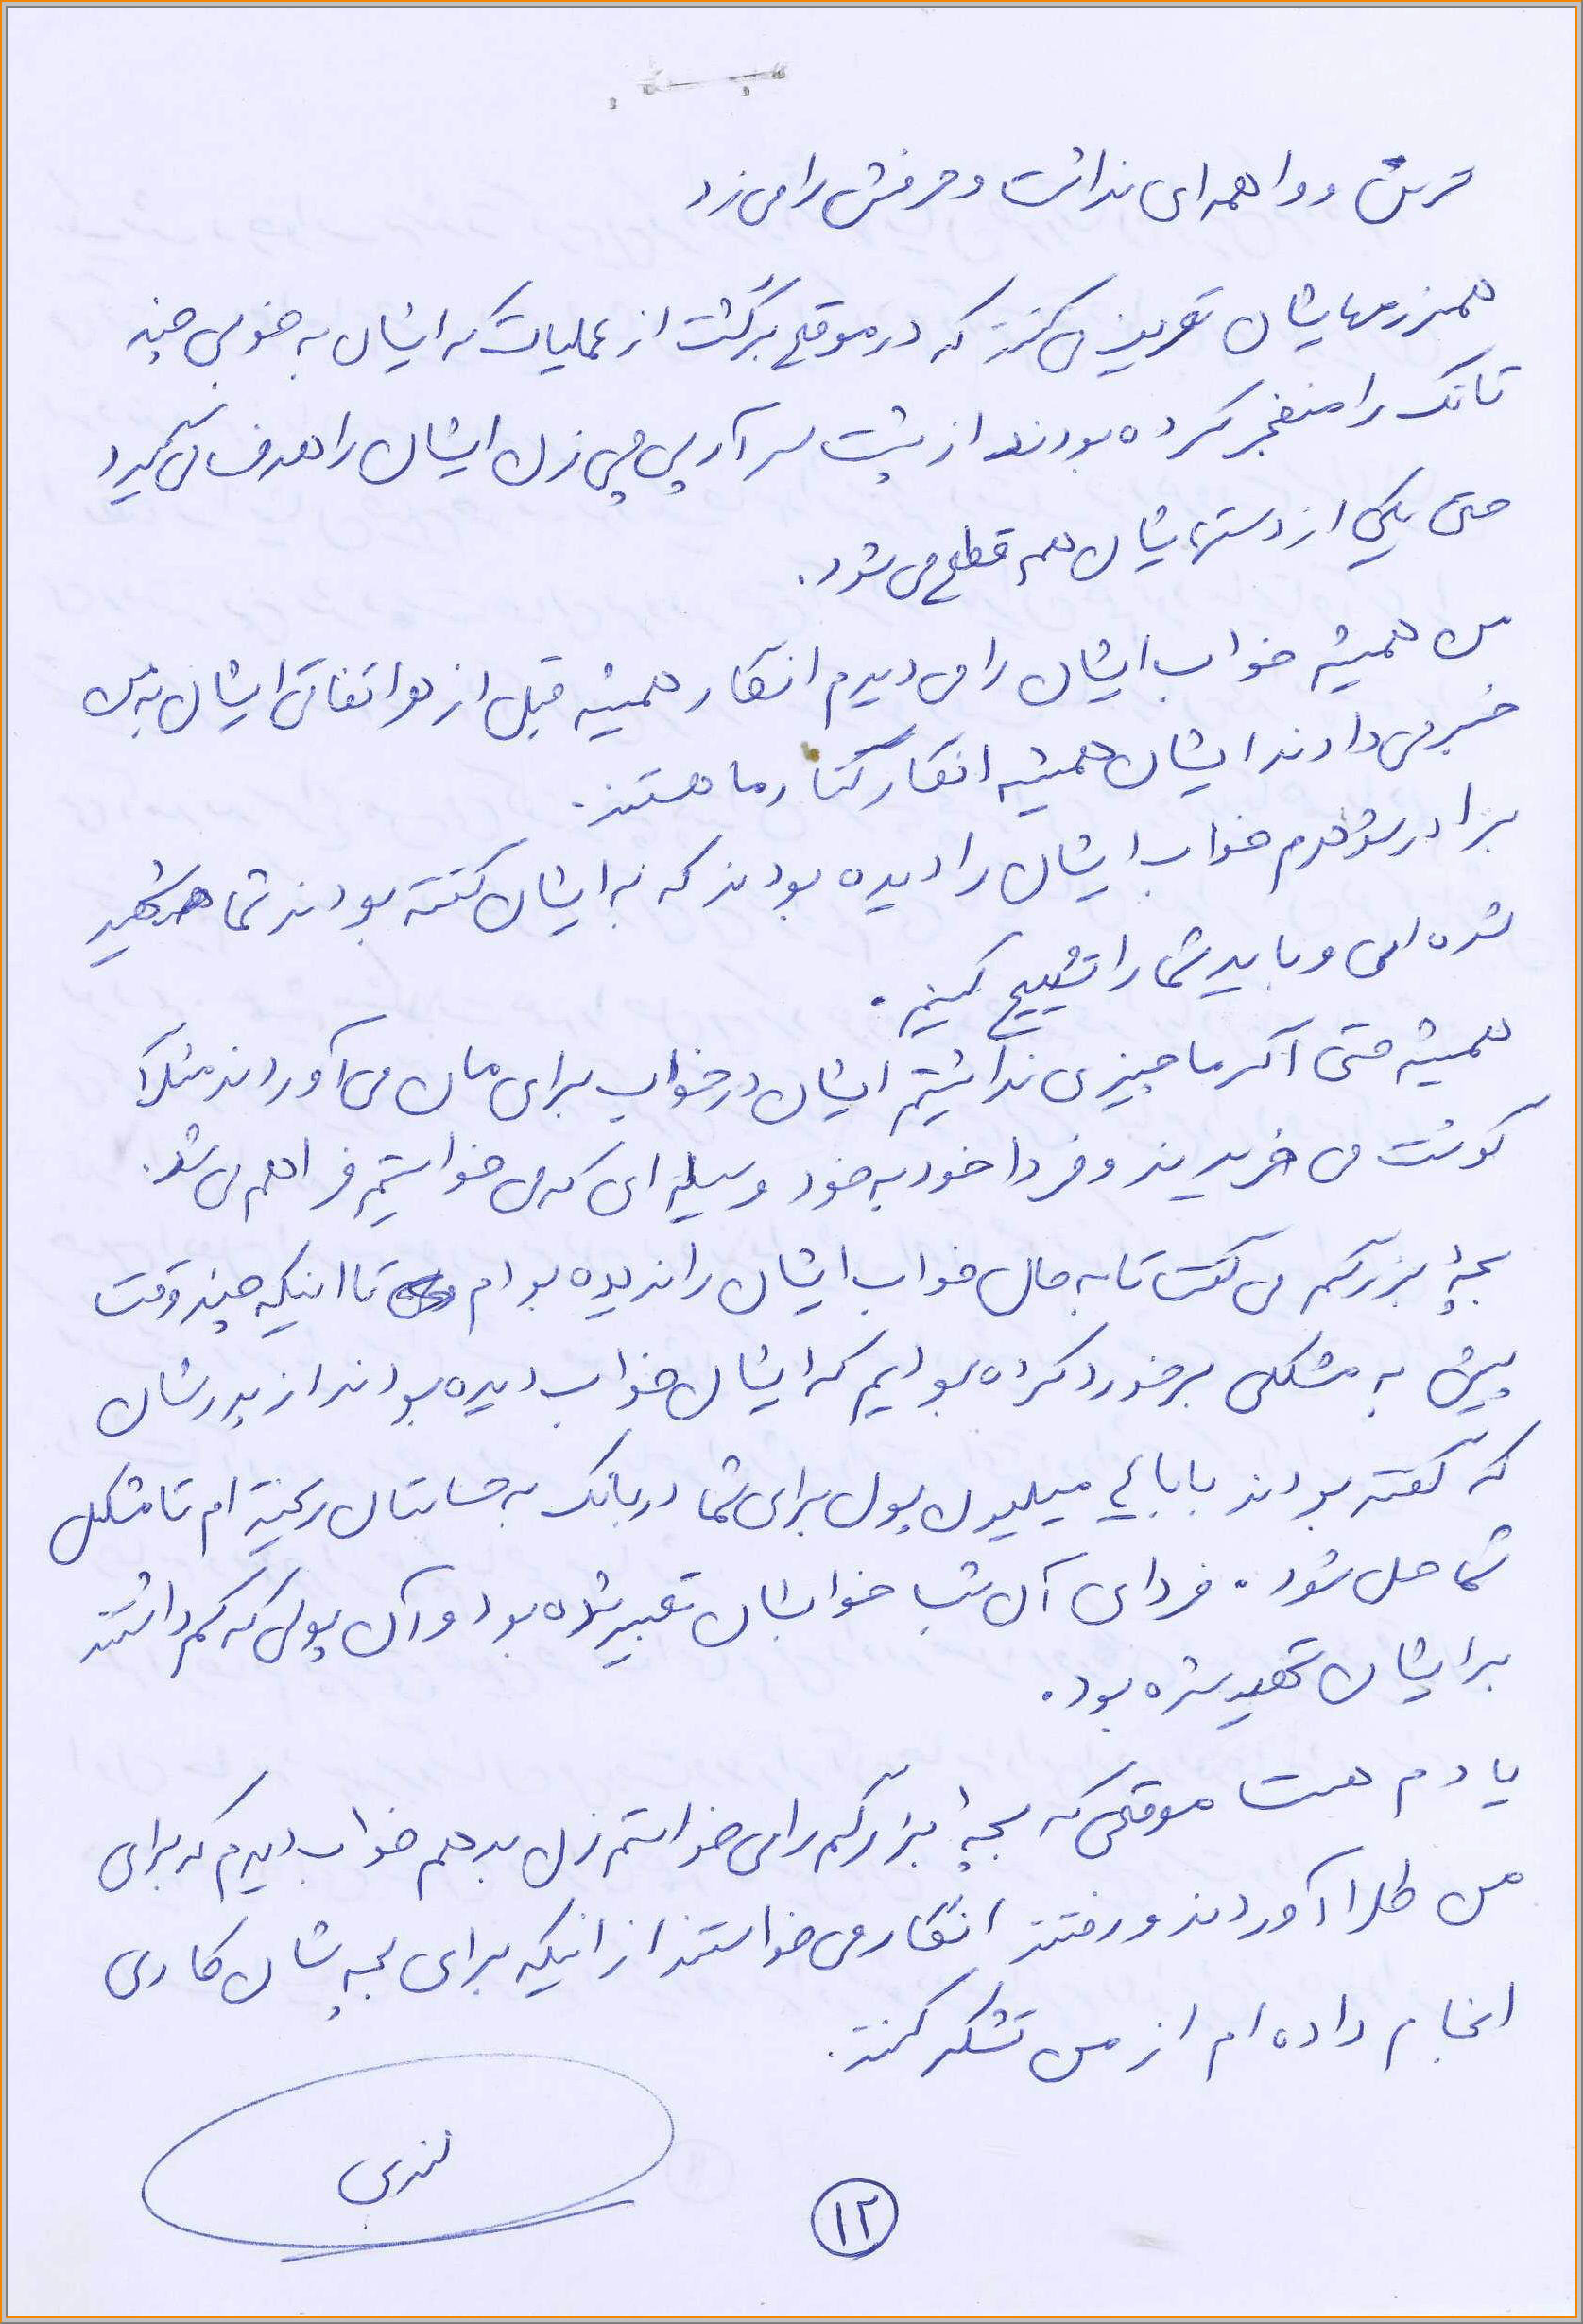 ترس و واهمه ای نداشت و حرفش را می زد
همرزمهایشان تعریف می کنند که در موقع برگشت از عملیات که ایشان به خوبی چند
تانک را منفجر کرده بودند از پشت سر آرپی جی زن ایشان را هدف می گیرد
حتی یکی از دستهایشان هم قطع می شود.
من همیشه خواب ایشان را می دیدم انگار همیشه قبل از هر اتفاقی ایشان به من
خبر می دادند ایشان همیشه انگار کنار ما هستند.
برادر شوهرم خواب ایشان را دیده بودند که به ایشان گفته بودند شما شهید
شده ای و باید شما را تشییع کنیم.
همیشه حتی اگر ما چیزی نداشتیم ایشان در خواب برای مان می آوردند مثلاً
گوشت می خریدند و فردا خود به خود وسیله ای که می خواستیم فراهم می شد.
بچهٔ بزرگم می گفت تا به حال خواب ایشان را ندیده بودم تا اینکه چند وقت
پیش به مشکلی برخورد کرده بودیم که ایشان خواب دیده بودند از پدرشان
که گفته بودند بابا ۴ میلیون پول برای شما در بانک به حسابتان ریخته ام تا مشکل
شما حل شود. فردای آن شب خوابشان تعبیر شده بود و آن پولی که کم داشتند
برایشان تهیه شده بود.
یادم هست موقعی که بچهٔ بزرگم را می خواستم زن بدهم خواب دیدم که برای
من طلا آوردند و رفتند انگار می خواستند از اینکه برای بچه شان کاری
انجام داده ام از من تشکر کنند.
۱۲